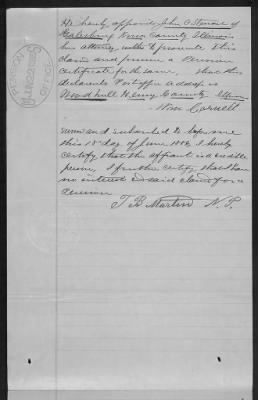 He hereby appoints John C Stewart of
Galesburg Knox County Illinois
his attorney with to prosecute this
claim and procure a Pension
certificate for the same, that this
declarants Post office address is
Woodhull Henry County Illinois
Wm Cornell
Sworn and subscribed to before me
this 15 day of June 18 I hereby
certify that the affiant is a credible
person, I further certify that I have
no interest in said claim for a
Pension
T B Martin N. P.